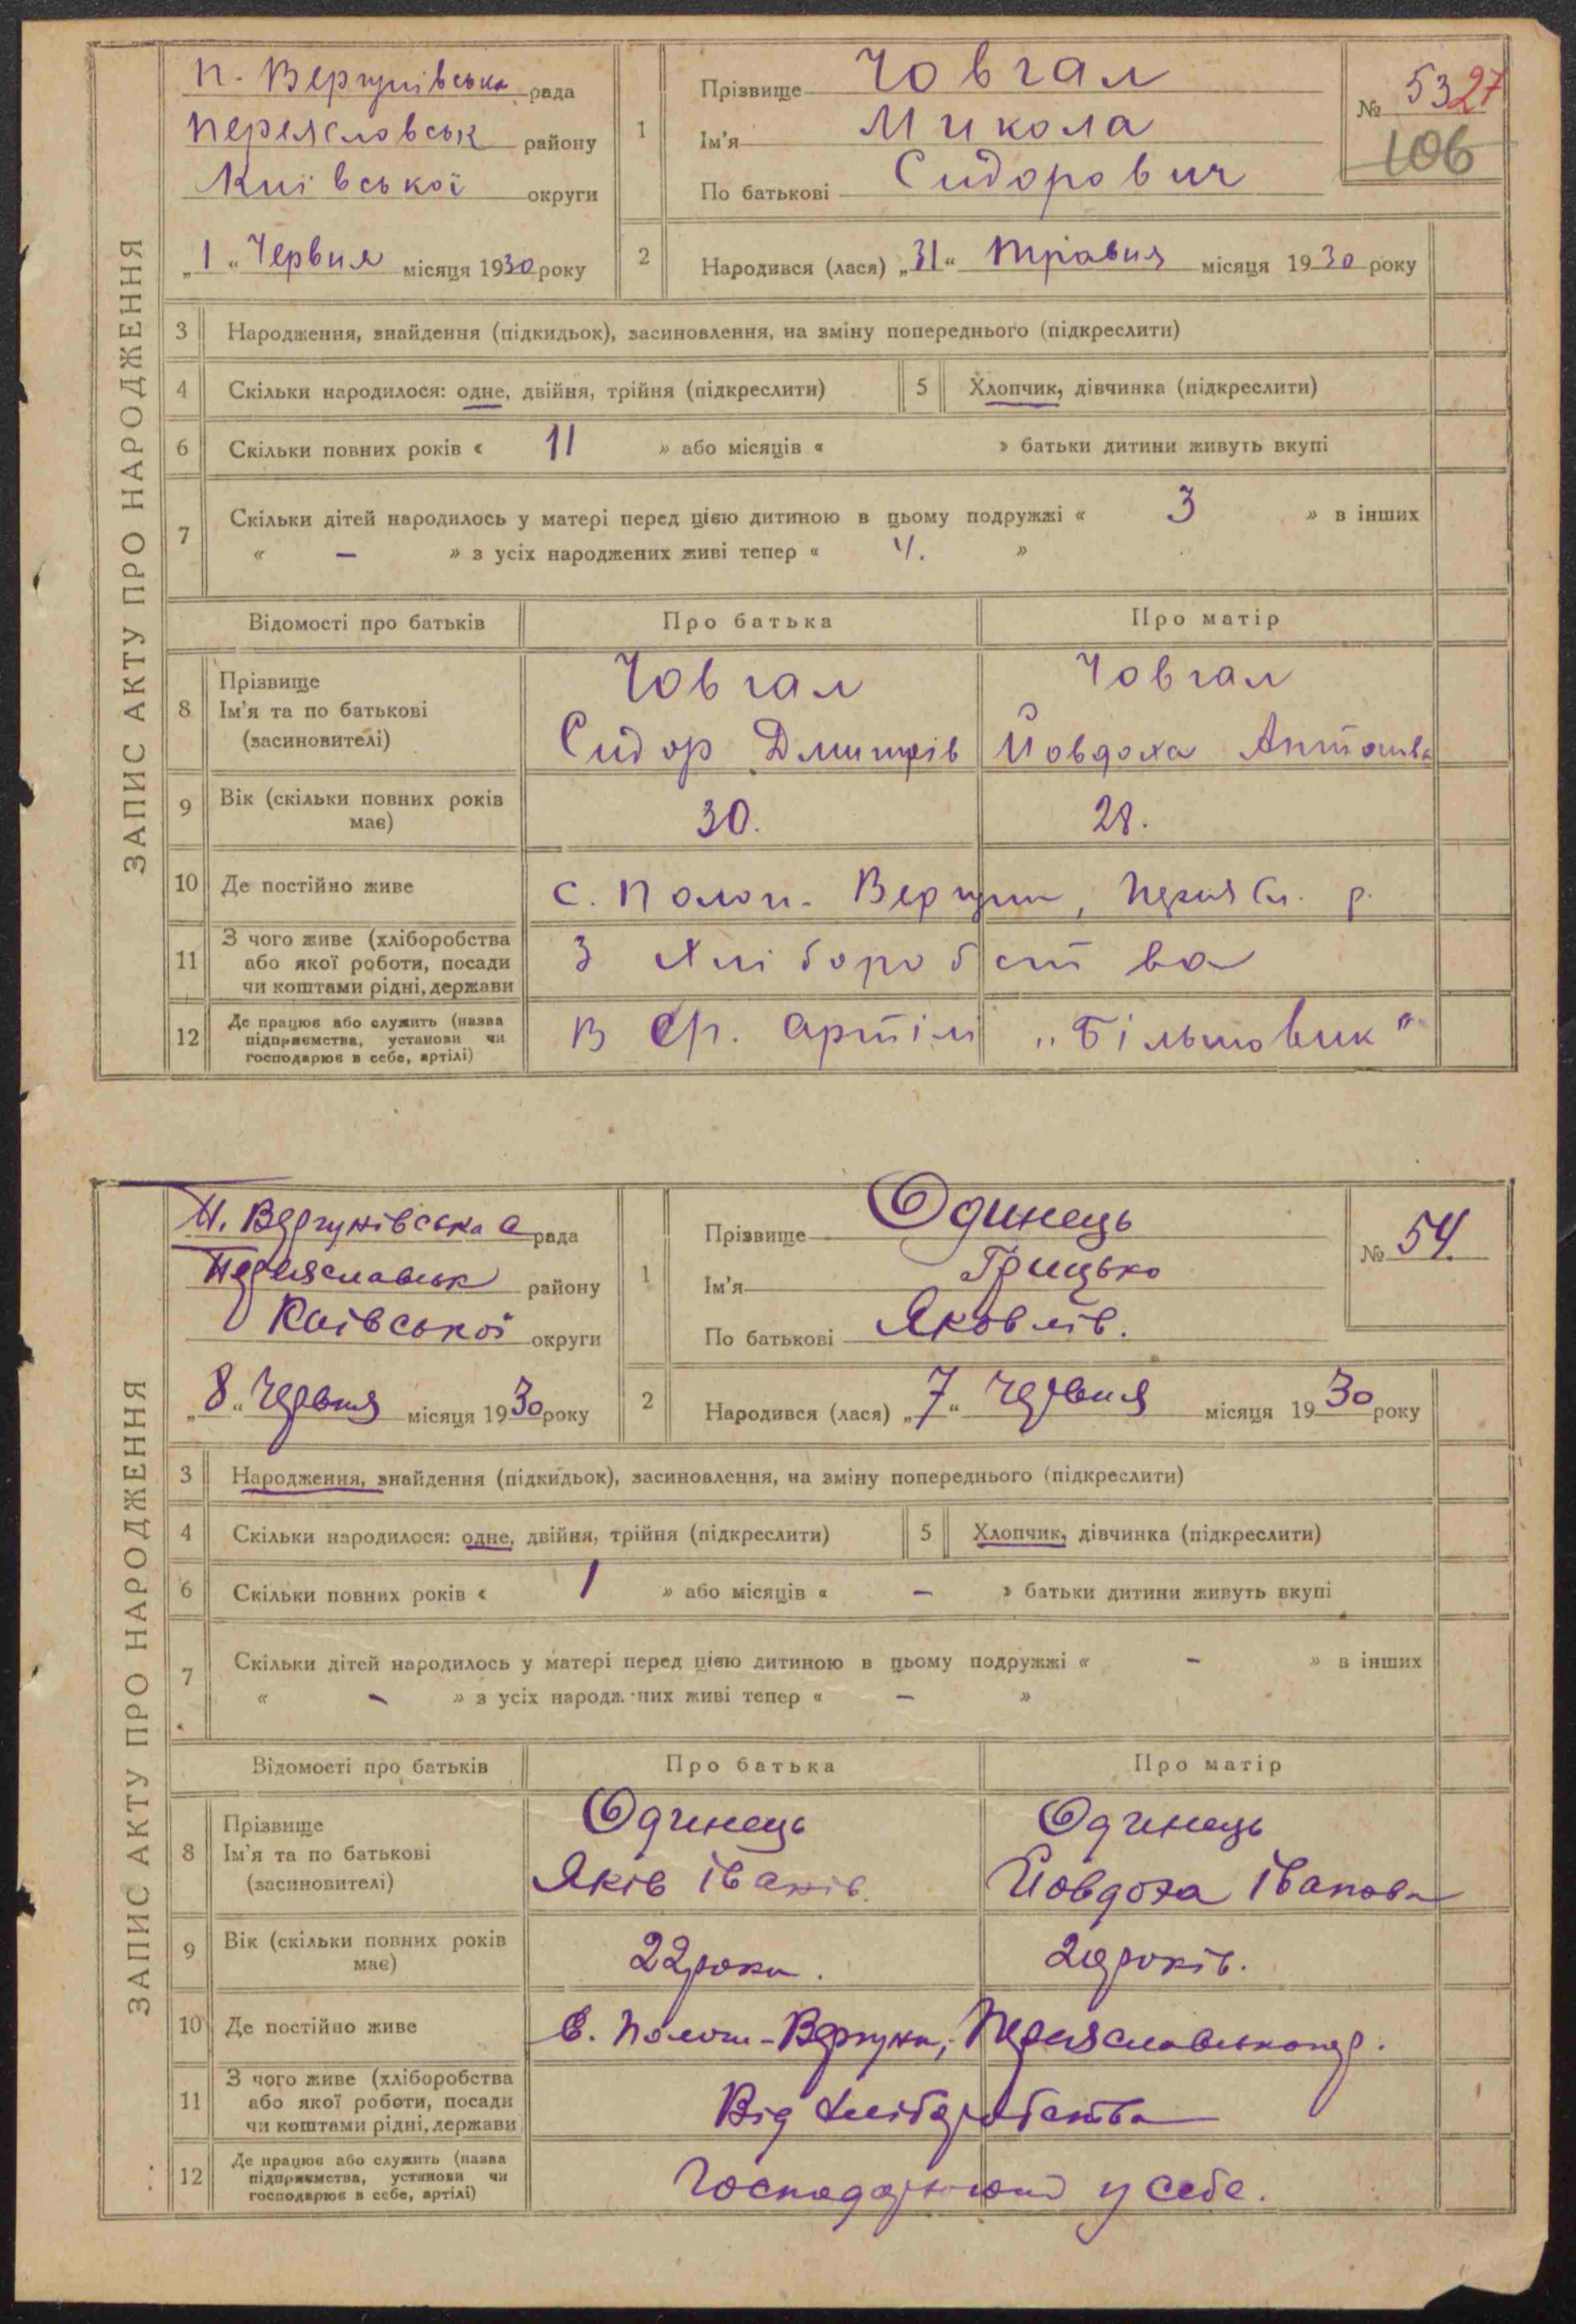 ЗАПИС АКТУ ПРО НАРОДЖЕННЯ
П. Вергунівська рада
Переясловськ району
Київської округи
„1“ Червня місяця 1930 року
1 Прізвище Човгал
Ім'я Микола
По батькові Сидорович
№ 53 27
106
2 Народився (лася) „31“ Травня місяця 1930 року
3 Народження, знайдення (підкидьок), засиновлення, на зміну попереднього (підкреслити)
4 Скільки народилося: одне, двійня, трійня (підкреслити) 5 Хлопчик, дівчинка (підкреслити)
6 Скільки повних років « 11 » або місяців « » батьки дитини живуть вкупі
7 Скільки дітей народилось у матері перед цією дитиною в цьому подружжі « 3 » в інших
« – » з усіх народжених живі тепер « 4. »
Відомості про батьків Про батька Про матір
8 Прізвище
Ім'я та по батькові
(засиновителі)
Човгал Човгал
Сидор Дмитрів Йовдоха Антонова
9 Вік (скільки повних років має) 30. 28.
10 Де постійно живе с. Полог. Вергуни, Переясл. р.
11 З чого живе (хліборобства
або якої роботи, посади
чи коштами рідні, держави
З Хліборобства
12 Де працює або служить (назва
підприємства, установи чи
господарює в себе, артілі)
В Ср. артілі „Більшовик"
ЗАПИС АКТУ ПРО НАРОДЖЕННЯ
П. Вергунівська рада
Переяславськ району
Київської округи
„8“ Червня місяця 1930 року
1 Прізвище Одинець
Ім'я Грицько
По батькові Яковлів.
№ 54.
2 Народився (лася) „7“ Червня місяця 1930 року
3 Народження, знайдення (підкидьок), засиновлення, на зміну попереднього (підкреслити)
4 Скільки народилося: одне, двійня, трійня (підкреслити) 5 Хлопчик, дівчинка (підкреслити)
6 Скільки повних років « 1 » або місяців « – » батьки дитини живуть вкупі
7 Скільки дітей народилось у матері перед цією дитиною в цьому подружжі « – » в інших
« – » з усіх народжених живі тепер « – »
Відомості про батьків Про батька Про матір
8 Прізвище
Ім'я та по батькові
(засиновителі)
Одинець Одинець
Яків Іванів. Йовдоха Іванова
9 Вік (скільки повних років має) 22 роки. років.
10 Де постійно живе С. Пологи-Вергуни, Переяславського р.
11 З чого живе (хліборобства
або якої роботи, посади
чи коштами рідні, держави
Від хліборобства
12 Де працює або служить (назва
підприємства, установи чи
господарює в себе, артілі)
Господарюють у себе.